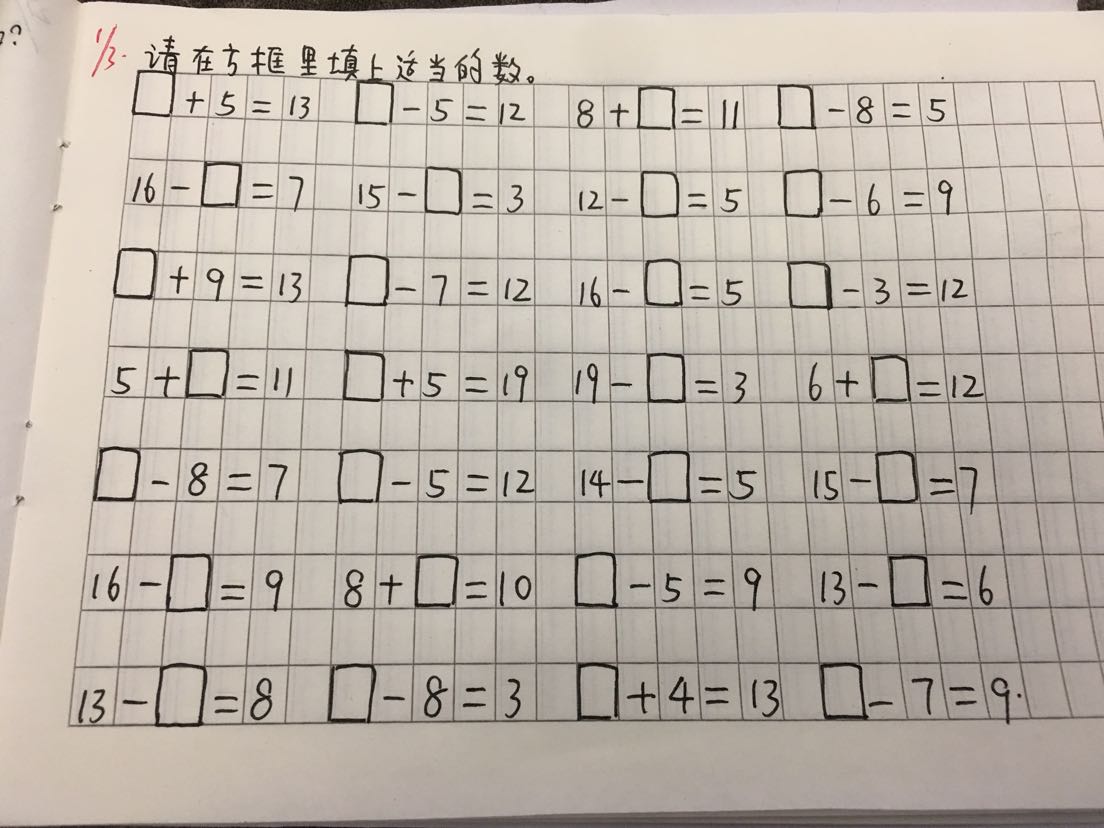 1/3.
请在方框里填上适当的数。
□+5=13 □-5=12 8+□=11 □-8=5
16-□=7 15-□=3 12-□=5 □-6=9
□+9=13 □-7=12 16-□=5 □-3=12
5+□=11 □+5=19 19-□=3 6+□=12
□-8=7 □-5=12 14-□=5 15-□=7
16-□=9 8+□=10 □-5=9 13-□=6
13-□=8 □-8=3 □+4=13 □-7=9.